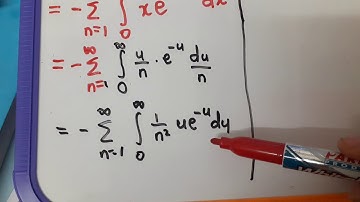 = -∑_{n=1}^{∞} ∫_{0} x e dx
= -∑_{n=1}^{∞} ∫_{0}^{∞} u/n · e^{-u} du/n
= -∑_{n=1}^{∞} ∫_{0}^{∞} 1/n² u e^{-u} du